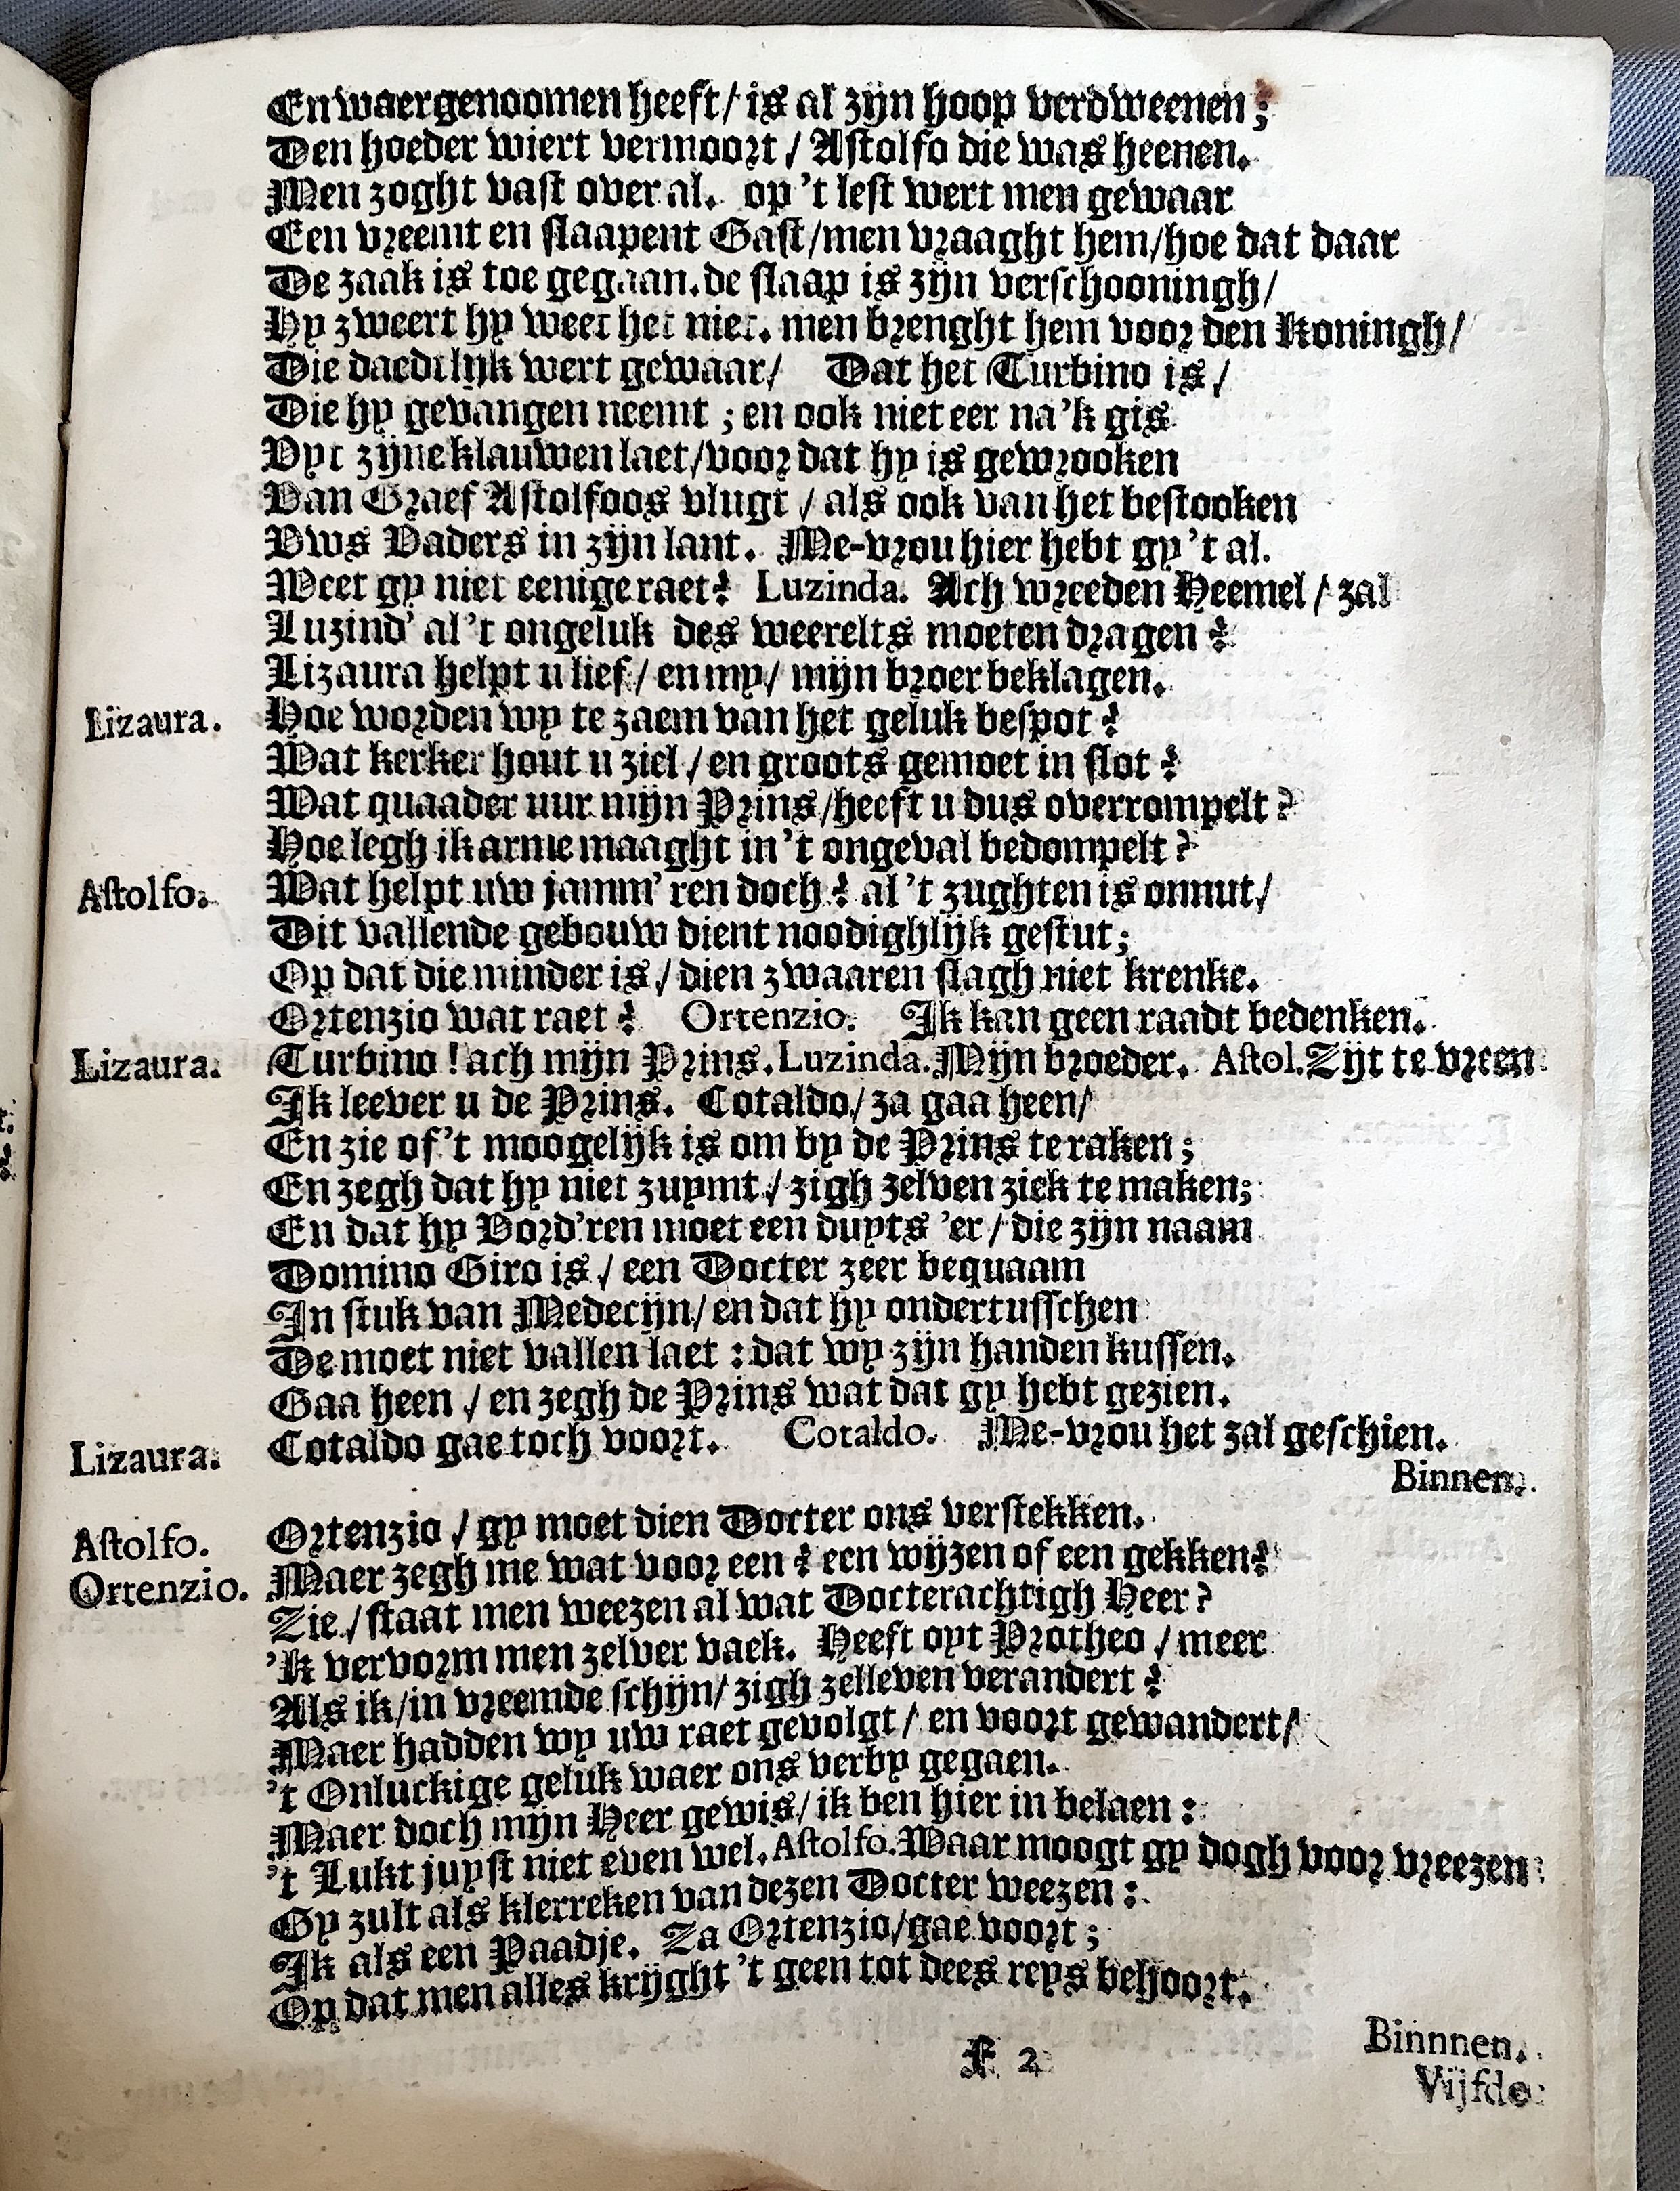 En waergenoomen heeft/ is al zijn hoop verdweenen;
Den hoeder wiert vermoort / Astolfo die was heenen.
Men zoght vast over al. op 't lest wert men gewaar
Een vreemt en slaapent Gast/men vraaght hem/hoe dat daar
De zaak is toe gegaan. de slaap is zijn verschooningh/
Hy zweert hy weet het niet. men brenght hem voor den Koningh/
Die daedtlijk wert gewaar/ Dat het Turbino is/
Die hy gevangen neemt ; en ook niet eer na 'k gis
Uyt zijne klauwen laet/voor dat hy is gewrooken
Van Graef Astolfoos vlugt / als ook van het bestooken
Uws Vaders in zijn lant. Me-vrou hier hebt gy 't al.
Weet gy niet eenige raet? Luzinda. Ach wreeden Heemel / zal
Luzind' al 't ongeluk des weerelts moeten dragen ?
Lizaura helpt u lief/ en my/ mijn broer beklagen.
Lizaura. Hoe worden wy te zaem van het geluk bespot ?
Wat kerker hout u ziel / en groots gemoet in slot ?
Wat quaader uur mijn Prins/heeft u dus overrompelt ?
Hoe legh ik arme maaght in 't ongeval bedompelt ?
Astolfo. Wat helpt uw jamm'ren doch ? al 't zughten is onnut/
Dit vallende gebouw dient noodighlijk gestut;
Op dat die minder is / dien zwaaren slagh niet krenke.
Ortenzio wat raet ? Ortenzio. Ik kan geen raadt bedenken.
Lizaura. Turbino ! ach mijn Prins. Luzinda. Mijn broeder. Astol. Zijt te vreen
Ik leever u de Prins. Cotaldo/ za gaa heen/
En zie of 't moogelijk is om by de Prins te raken ;
En zegh dat hy niet zuymt / zigh zelven ziek te maken;
En dat hy Vord'ren moet een duyts 'er / die zijn naam
Domino Giro is / een Docter zeer bequaam
In stuk van Medecijn/ en dat hy ondertusschen
De moet niet vallen laet : dat wy zijn handen kussen.
Gaa heen / en zegh de Prins wat dat gy hebt gezien.
Lizaura. Cotaldo gae toch voort. Cotaldo. Me-vrou het zal geschien.
Binnen.
Astolfo. Ortenzio / gy moet dien Docter ons verstekken.
Ortenzio. Maer zegh me wat voor een ? een wijzen of een gekken?
Zie / staat men weezen al wat Docterachtigh Heer ?
'k vervorm men zelver vaek. Heeft oyt Protheo / meer
Als ik/in vreemde schijn/ zigh zelleven verandert ?
Maer hadden wy uw raet gevolgt / en voort gewandert/
't Onluckige geluk waer ons verby gegaen.
Maer doch mijn Heer gewis/ ik ben hier in belaen :
't Lukt juyst niet even wel. Astolfo. Waar moogt gy dogh voor vreezen
Gy zult als klerreken van dezen Docter weezen :
Ik als een Paadje. Za Ortenzio/gae voort ;
Op dat men alles krijght 't geen tot dees reys behoort.
Binnnen.
F 2
Vijfde